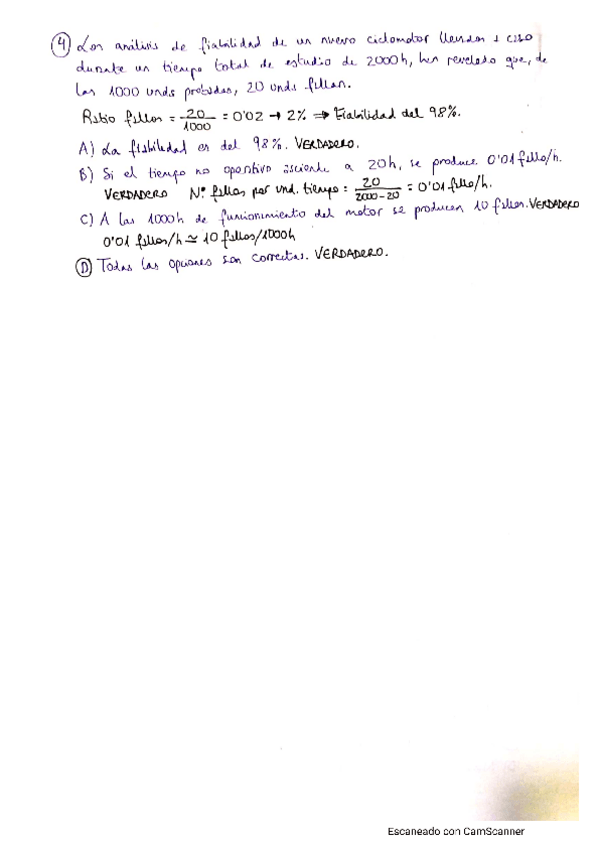 ④ Los análisis de fiabilidad de un nuevo ciclomotor llevados a cabo
durante un tiempo total de estudio de 2000h, han revelado que, de
las 1000 unds probadas, 20 unds fallan.
Ratio fallos = 20/1000 = 0'02 → 2% ⇒ Fiabilidad del 98%.
A) La fiabilidad es del 98%. VERDADERO.
B) Si el tiempo no operativo asciende a 20h, se produce 0'01 fallo/h.
VERDADERO Nº fallos por und. tiempo = 20/2000-20 = 0'01 fallo/h.
C) A las 1000h de funcionamiento del motor se producen 10 fallos. VERDADERO
0'01 fallos/h ≃ 10 fallos/1000h
Ⓓ Todas las opciones son correctas. VERDADERO.
Escaneado con CamScanner